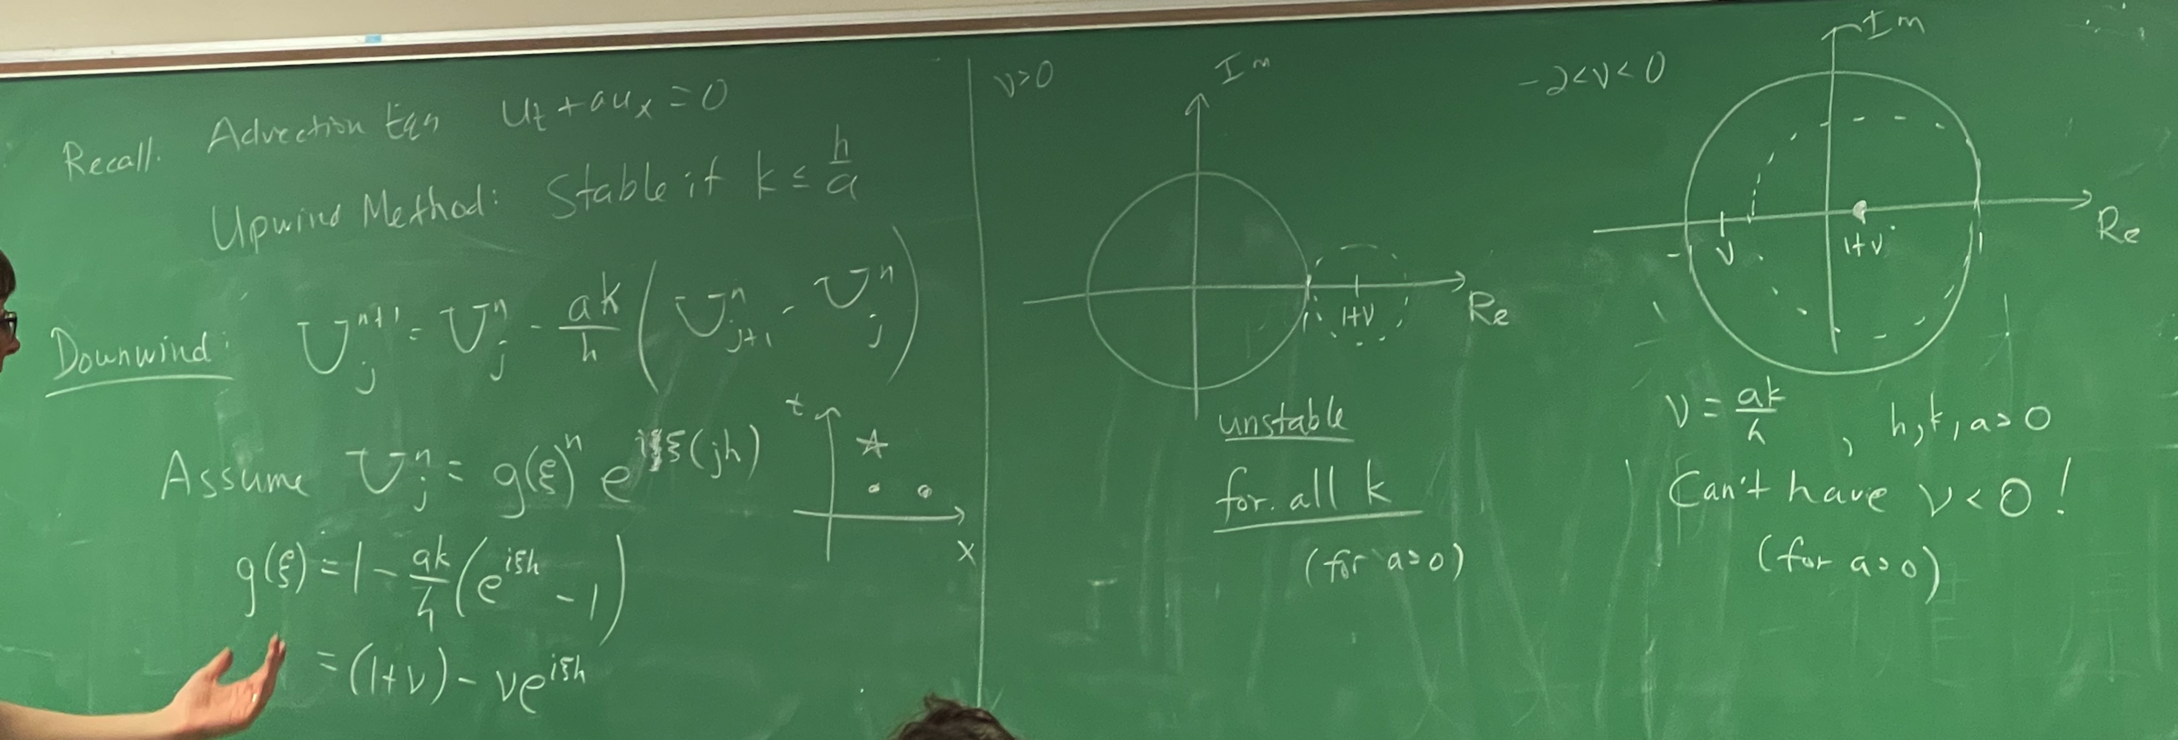 Recall. Advection Eqn u_t + au_x = 0
Upwind Method: Stable if k ≤ h/a
Downwind: U_j^{n+1} = U_j^n - ak/h (U_{j+1}^n - U_j^n)
Assume U_j^n = g(ξ)^n e^{iξ(jh)}
g(ξ) = 1 - ak/h (e^{iξh} - 1)
= (1+ν) - νe^{iξh}
t
x
ν>0
Im
Re
1+ν
unstable
for all k
(for a>0)
-2<ν<0
Im
Re
-1
ν
1+ν
1
ν = ak/h , h,k,a>0
Can't have ν<0!
(for a>0)